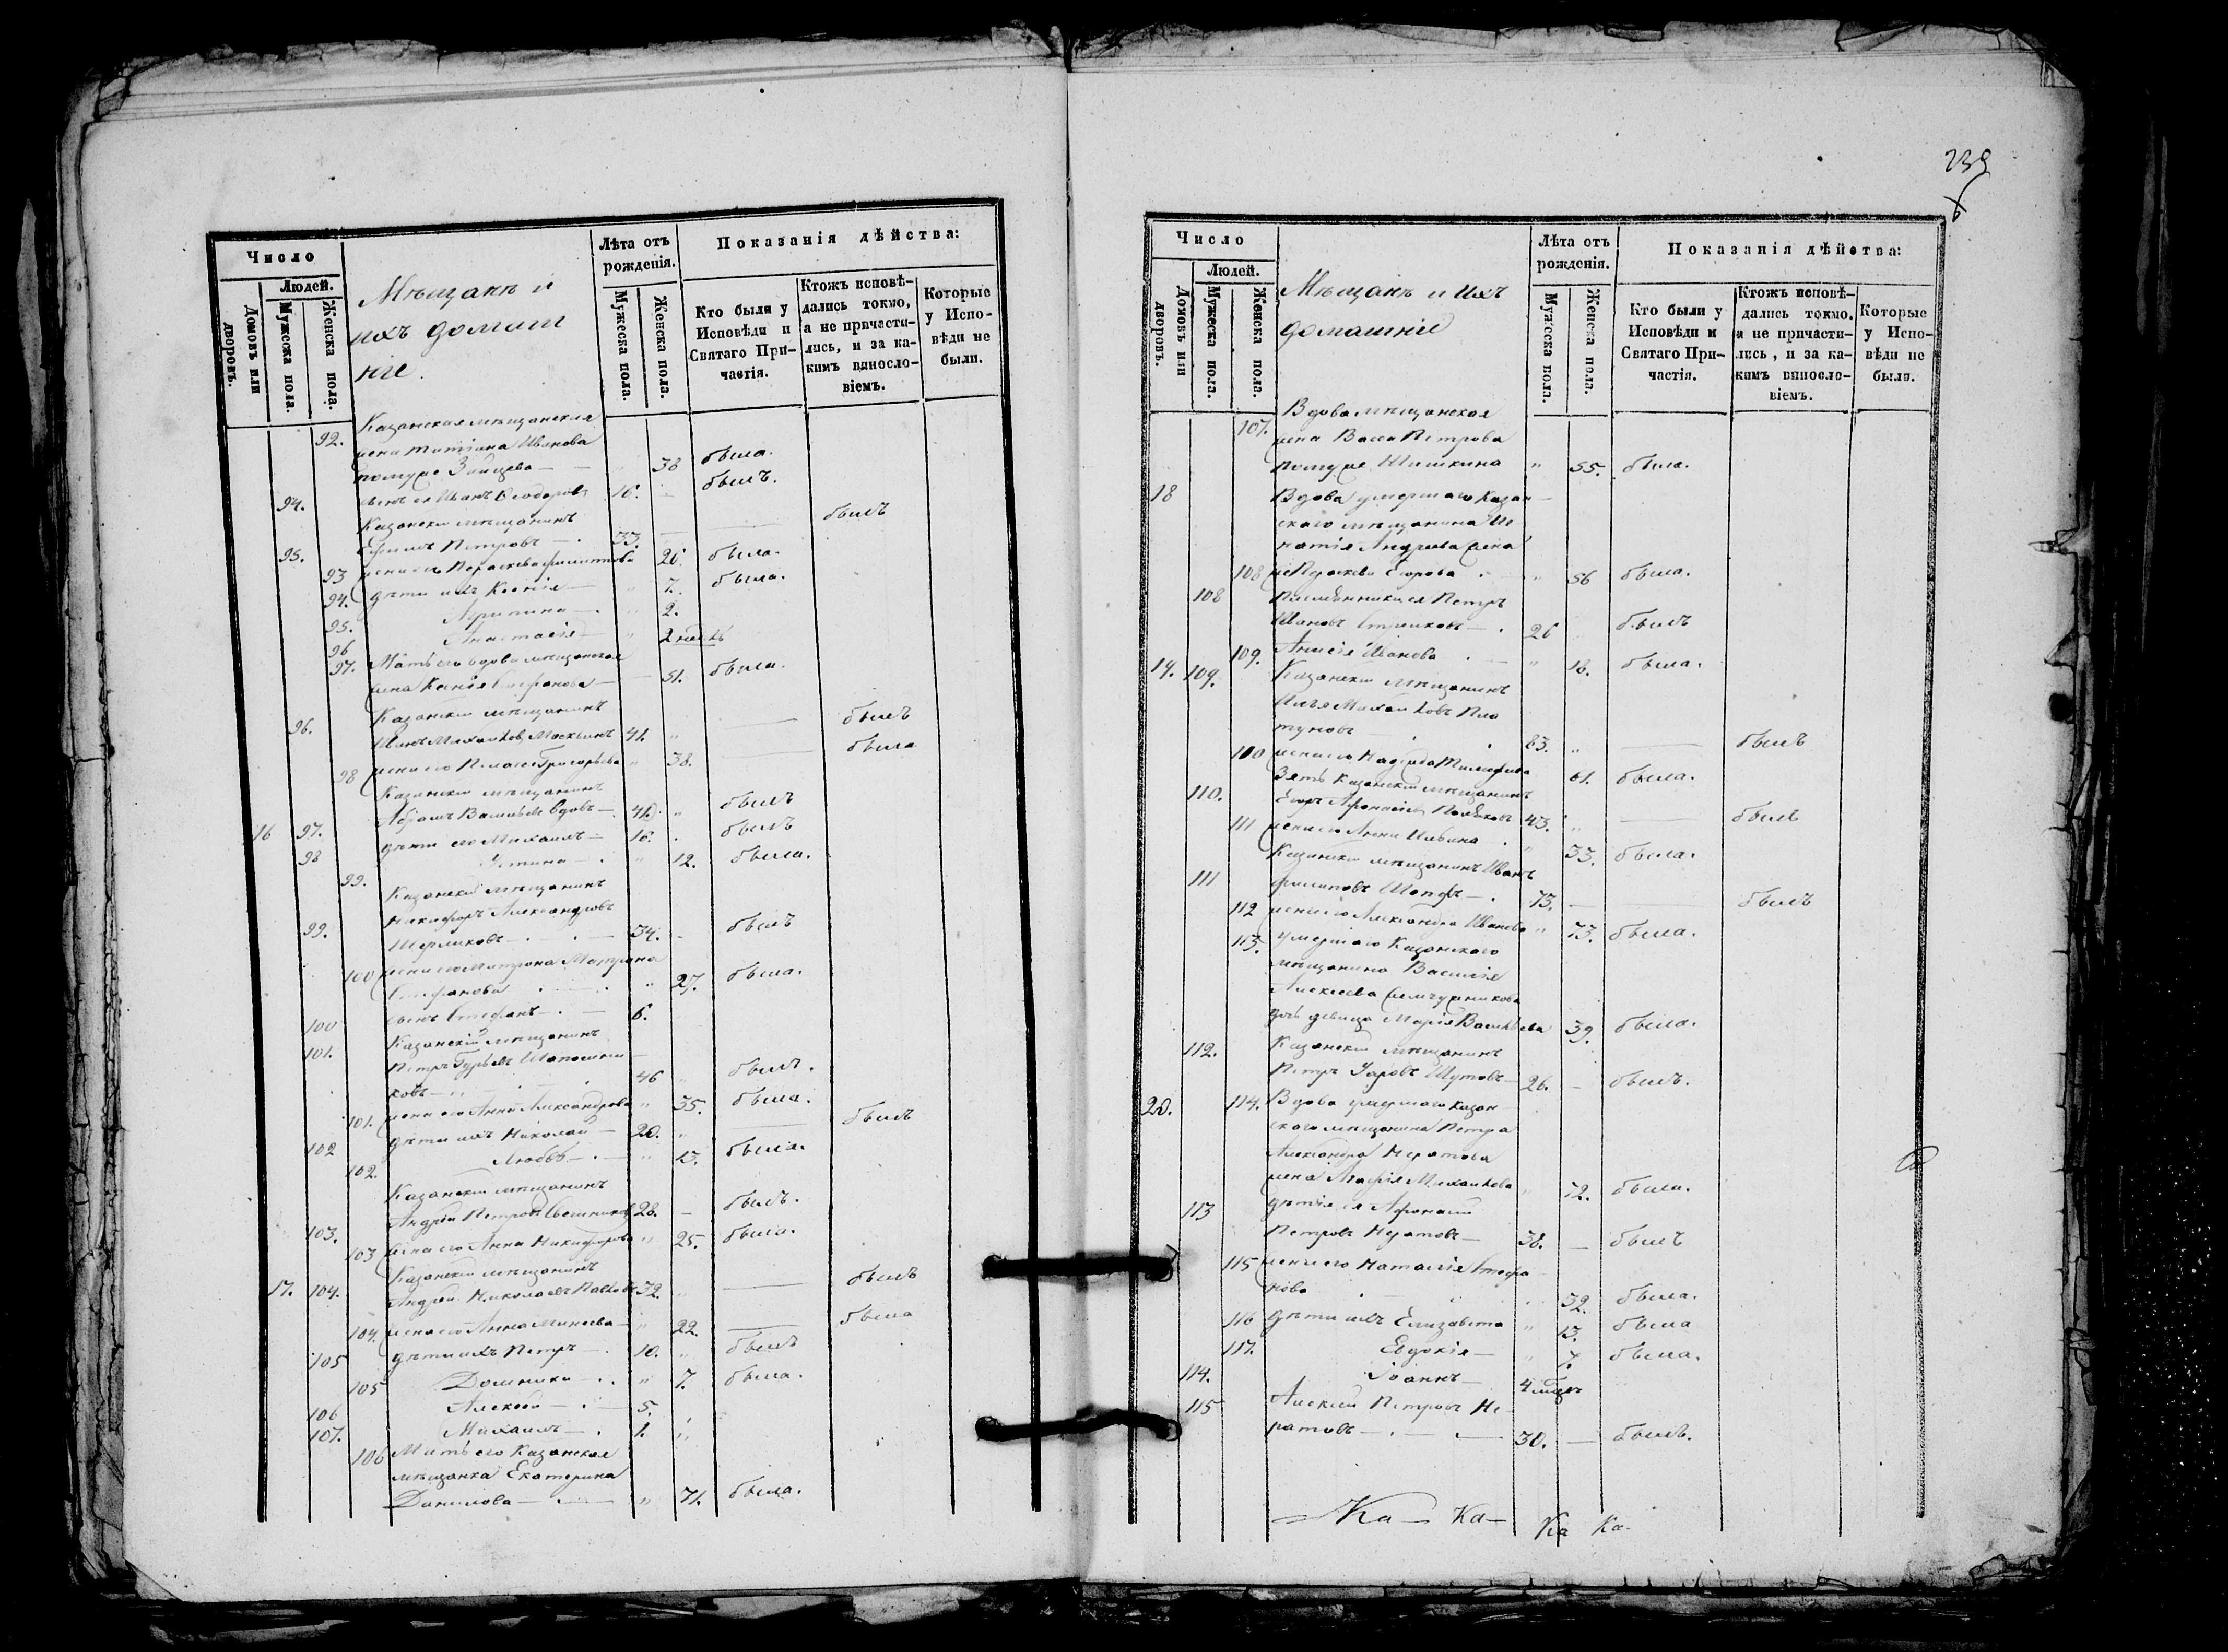 Число
Людей.
Домовъ или дворовъ.
Мужеска пола.
Женска пола.
Мѣщанъ и
ихъ домаш
ніе.
Лѣта отъ рожденія.
Мужеска пола.
Женска пола.
Показанія дѣйства:
Кто были у Исповѣди и Святаго Причастія.
Ктожъ исповѣдались токмо, а не причастились, и за какимъ винословіемъ.
Которые у Исповѣди не были.
92. Казанская мѣщанская
жена Татіана Иванова
по муже Зайцева — 38 была.
94. сынъ ея Иванъ Ѳеодоровъ 16. былъ.
Казанскій мѣщанинъ
95. Ефимъ Петровъ — 33. былъ
93 жена его Параскева Филипова 26. была.
94. дѣти ихъ Ксенія — 7. была.
95. Агрипина — 2.
96 Анастасія —
97. Мать его вдова мѣщанская
жена Ксенія Стефанова — 51. была.
Казанскій мѣщанинъ
96. Иванъ Михайловъ Москвинъ 41. былъ
98 жена его Пелагея Григорьева 38. была
Казанскій мѣщанинъ
16 97. Абрамъ Васильевъ 40. былъ
98 дѣти его Михаилъ — 16. былъ
99. Устина — 12. была.
Казанскій мѣщанинъ
Никифоръ Александровъ
99. 34. былъ
100 жена его Матрона
Стефанова 27. была.
100 сынъ Стефанъ — 6.
101. Казанскій мѣщанинъ
Петръ Гурьевъ Шапошни
ковъ — 46 былъ.
101. жена его Анна Александрова 35. была.
102 дѣти ихъ Николай — 20. былъ
102. Любовь — 13. была.
Казанскій мѣщанинъ
103. Андрей Петровъ 28. былъ.
103 жена его Анна Никифорова 25. была.
Казанскій мѣщанинъ
17. 104. Андрей Николаевъ 32. былъ
104. жена его Анна Минеева — 22. была
105 дѣти ихъ Петръ — 10. былъ
105 Домника — 7. была.
106 Алексей — 5.
107. Михаилъ — 1.
106 Мать его Казанская
мѣщанка Екатерина
Данилова — 71. была.
239
Число
Людей.
Домовъ или дворовъ.
Мужеска пола.
Женска пола.
Мѣщанъ и ихъ
домашніе
Лѣта отъ рожденія.
Мужеска пола.
Женска пола.
Показанія дѣйства:
Кто были у Исповѣди и Святаго Причастія.
Ктожъ исповѣдались токмо, а не причастились, и за какимъ винословіемъ.
Которые у Исповѣди не были.
Вдова мѣщанская
107. жена Васса Петрова
по муже Шишкина 55. была.
18 Вдова умершаго Казан
скаго мѣщанина Иг
натія Андреева жена
108 Параскева Егорова 56 была.
108 Племянники ея Петръ
Ивановъ 26 былъ
109. Анисія Иванова 18. была.
19. 109. Казанскій мѣщанинъ
Илья Михайловъ Пла
туновъ 83. былъ
100 жена его Надежда Тимофеева 61. была.
Зять Казанскій мѣщанинъ
110. Егоръ Афонасьевъ Поляковъ 43. былъ
111 жена его Анна Ильина 33. была.
Казанскій мѣщанинъ Иванъ
111 Филиповъ 73. былъ
112 жена его Александра Иванова 73. была.
113. Умершаго Казанскаго
мѣщанина Василія
Алексеева
дочь девица Марія Васильева 39. была.
112. Казанскій мѣщанинъ
Петръ Уаровъ Шутовъ — 26. былъ.
20. 114. Вдова умершаго Казан
скаго мѣщанина Петра
Александра Нератова
жена Агафія Михайлова 72. была.
113 дѣти ея Афонасій
Петровъ Нератовъ — 38. былъ
115 жена его Наталія Стефа
нова 32. была.
116 дѣти ихъ Елизавета 13. была
117. Евдокія — 7. была.
114. Іоаннъ — 4
115 Алексей Петровъ Не
ратовъ — 30. былъ.
Ка— Ка— Ка Ка-